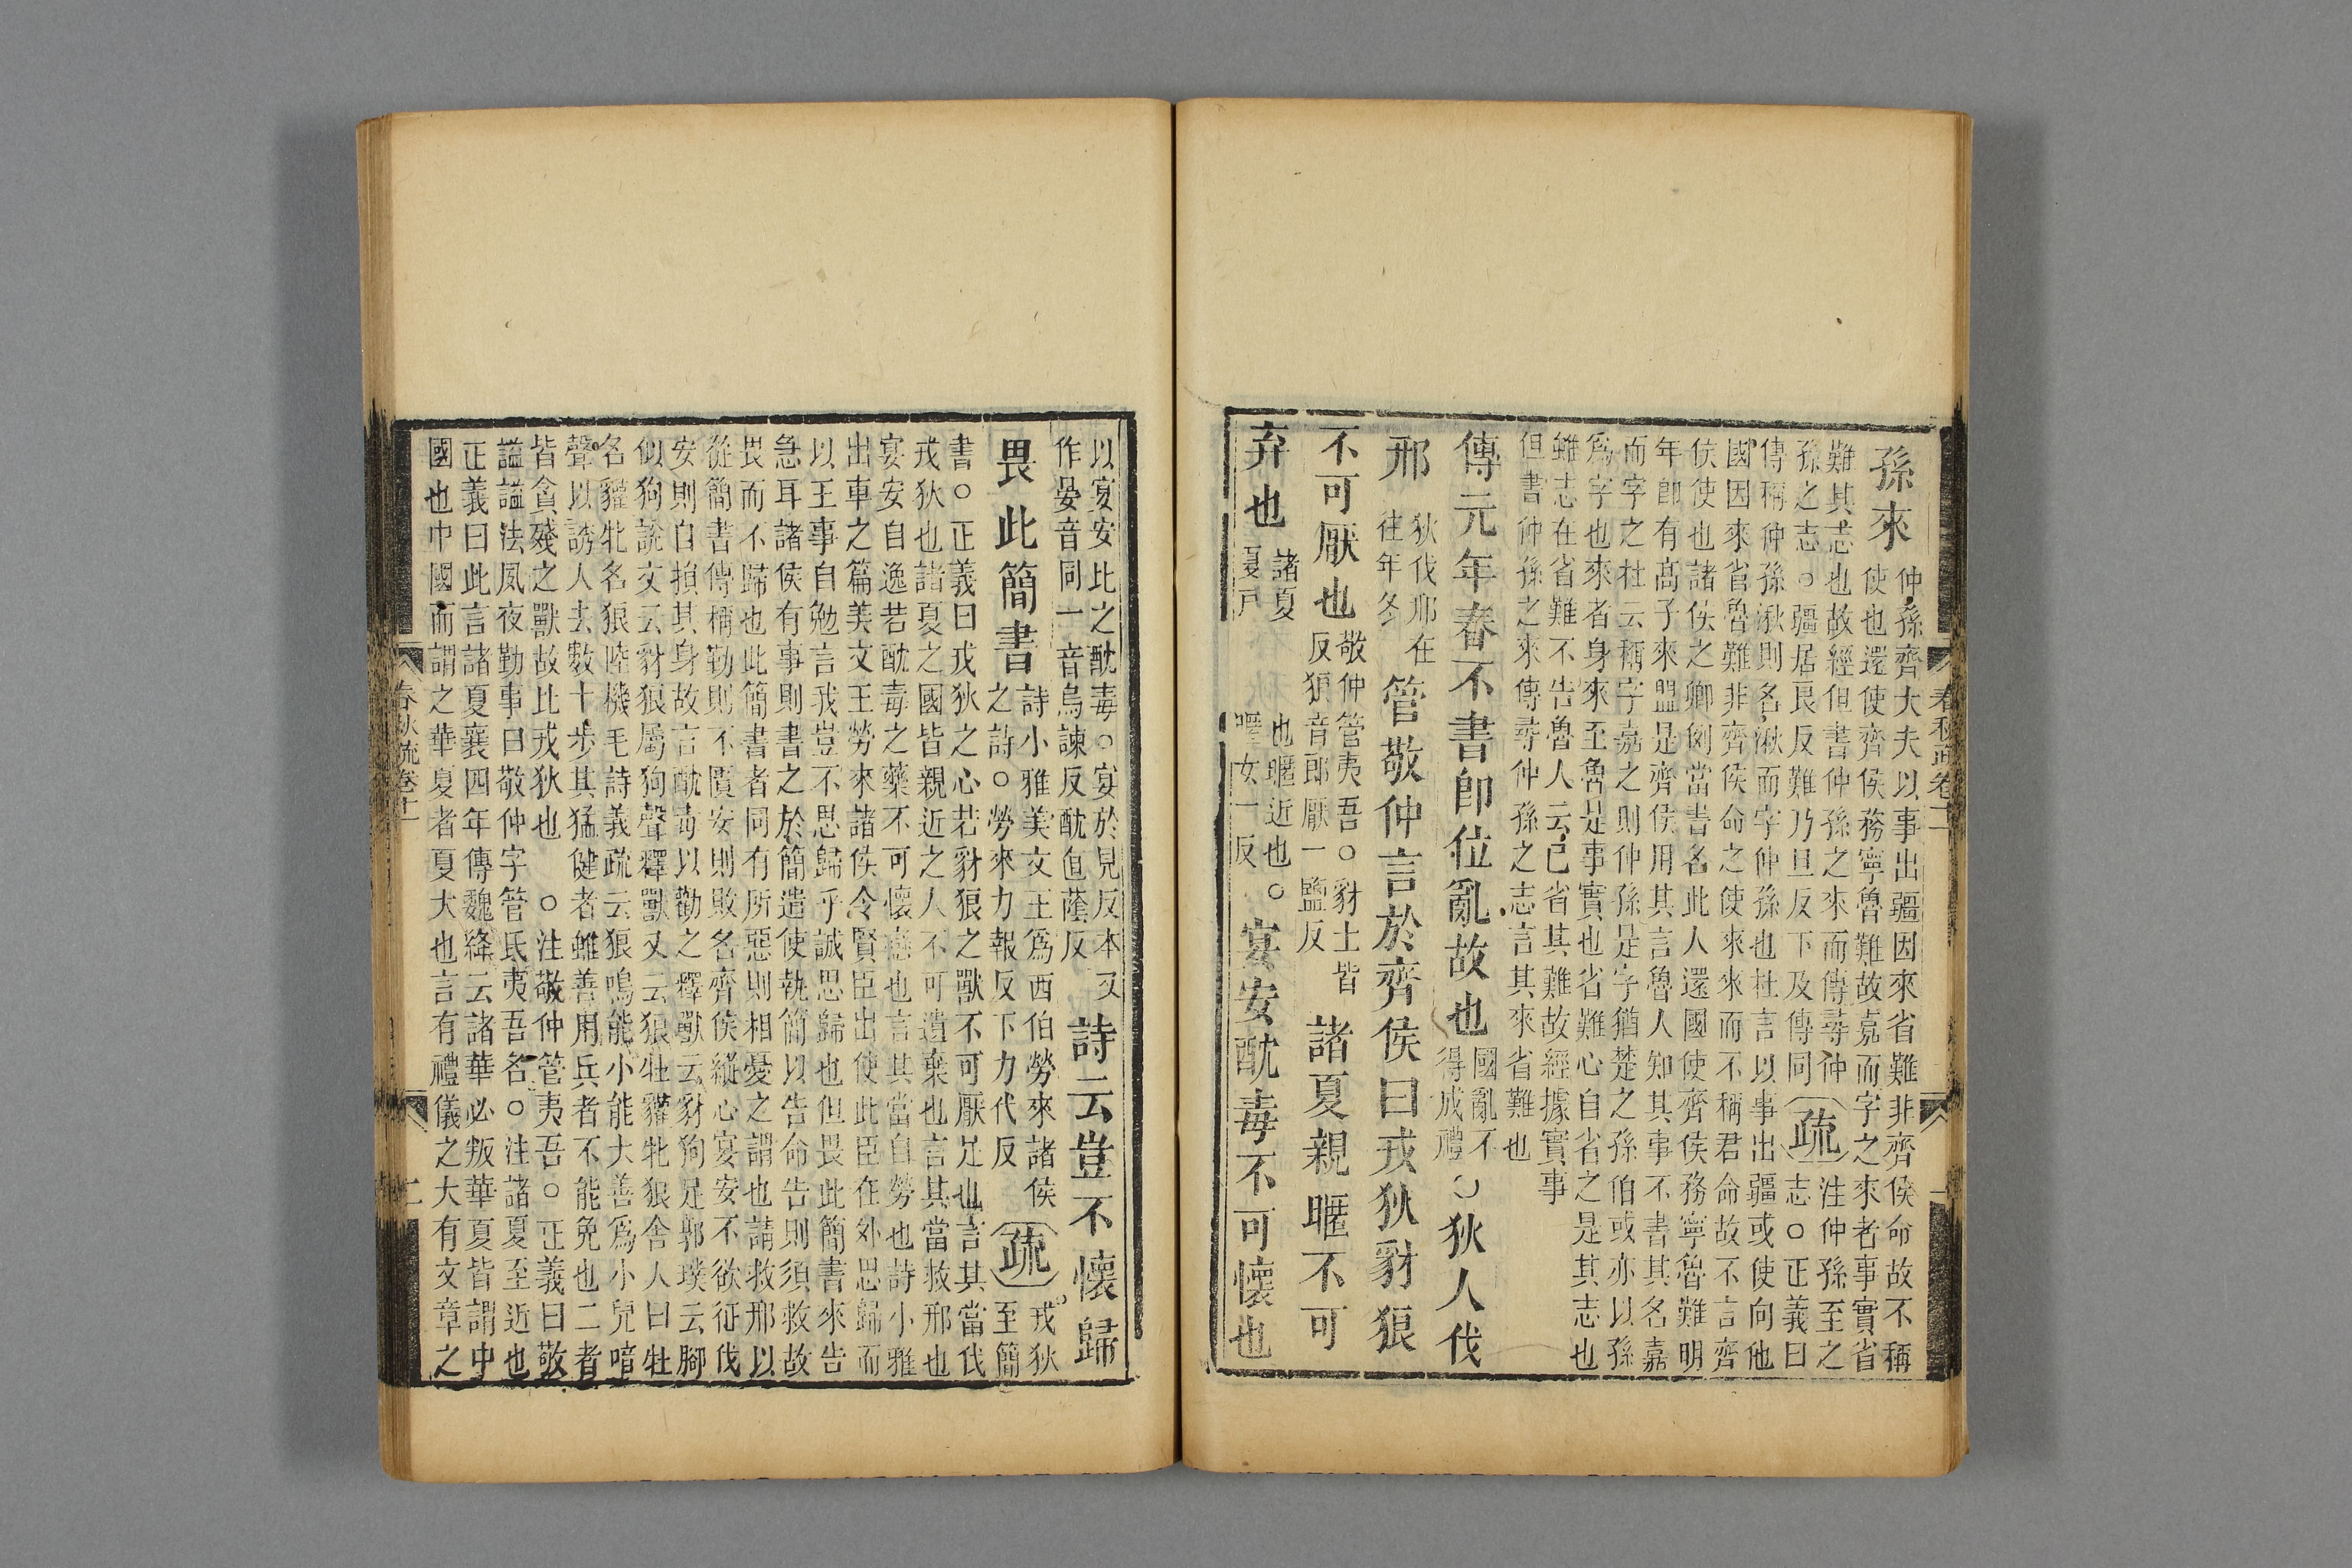 孫來
仲孫齊大夫以事出疆因來省難非齊侯命故不稱
使也還使齊侯務寧魯難故嘉而字之來者事實省
難其志也故經但書仲孫之來而傳尋仲
孫之志○疆居良反難乃旦反下及傳同
疏
注仲孫至之
志○正義曰
傳稱仲孫湫則名湫而字仲孫也杜言以事出疆或使向他
國因來省魯難非齊侯命之使來來而不稱君命故不言齊
侯使也諸侯之卿例當書名此人還國使齊侯務寧魯難明
年卽有高子來盟是齊侯用其言魯人知其事不書其名嘉
而字之杜云稱字嘉之則仲孫是字猶楚之孫伯或亦以孫
爲字也來者身來至魯是事實也省難心自省之是其志也
雖志在省難不告魯人云已省其難故經據實事
但書仲孫之來傳尋仲孫之志言其來省難也
傳元年春不書卽位亂故也
國亂不
得成禮
○狄人伐
邢
狄伐邢在
往年冬
管敬仲言於齊侯曰戎狄豺狼
不可厭也
敬仲管夷吾○豺士皆
反狼音郎厭一鹽反
諸夏親暱不可
弃也
諸夏
夏戶
也暱近也○
暱女一反
宴安酖毒不可懷也
以宴安比之酖毒○宴於見反本又
作晏音同一音烏諫反酖直蔭反
詩云豈不懷歸
畏此簡書
詩小雅美文王爲西伯勞來諸侯
之詩○勞來力報反下力代反
疏
戎狄
至簡
書○正義曰戎狄之心若豺狼之獸不可厭足也言其當伐
戎狄也諸夏之國皆親近之人不可遺棄也言其當救邢也
宴安自逸若酖毒之藥不可懷戀也言其當自勞也詩小雅
出車之篇美文王勞來諸侯令賢臣出使此臣在外思歸而
以王事自勉言我豈不思歸乎誠思歸也但畏此簡書來告
急耳諸侯有事則書之於簡遣使執簡以告命告則須救故
畏而不歸也此簡書者同有所惡則相憂之謂也請救邢以
從簡書傳稱勤則不匱安則敗名齊侯縱心宴安不欲征伐
安則自損其身故言酖毒以勸之釋獸云豺狗足郭璞云腳
似狗說文云豺狼屬狗聲釋獸又云狼牡貛牝狼舍人曰牡
名貛牝名狼陸機毛詩義疏云狼鳴能小能大善爲小兒啼
聲以誘人去數十步其猛健者雖善用兵者不能免也二者
皆貪殘之獸故比戎狄也　○注敬仲管夷吾○正義曰敬
謚謚法夙夜勤事曰敬仲字管氏夷吾名○注諸夏至近也
正義曰此言諸夏襄四年傳魏絳云諸華必叛華夏皆謂中
國也中國而謂之華夏者夏大也言有禮儀之大有文章之
春秋疏卷十一
二